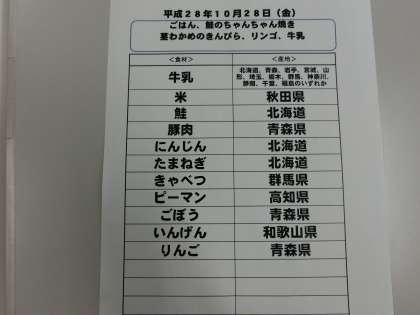 平成28年10月28日（金）
ごはん、鮭のちゃんちゃん焼き
茎わかめのきんぴら、リンゴ、牛乳
＜食材＞ ＜産地＞
牛乳 北海道、青森、岩手、宮城、山形、埼玉、栃木、群馬、神奈川、静岡、千葉、福島のいずれか
米 秋田県
鮭 北海道
豚肉 青森県
にんじん 北海道
たまねぎ 北海道
きゃべつ 群馬県
ピーマン 高知県
ごぼう 青森県
いんげん 和歌山県
りんご 青森県